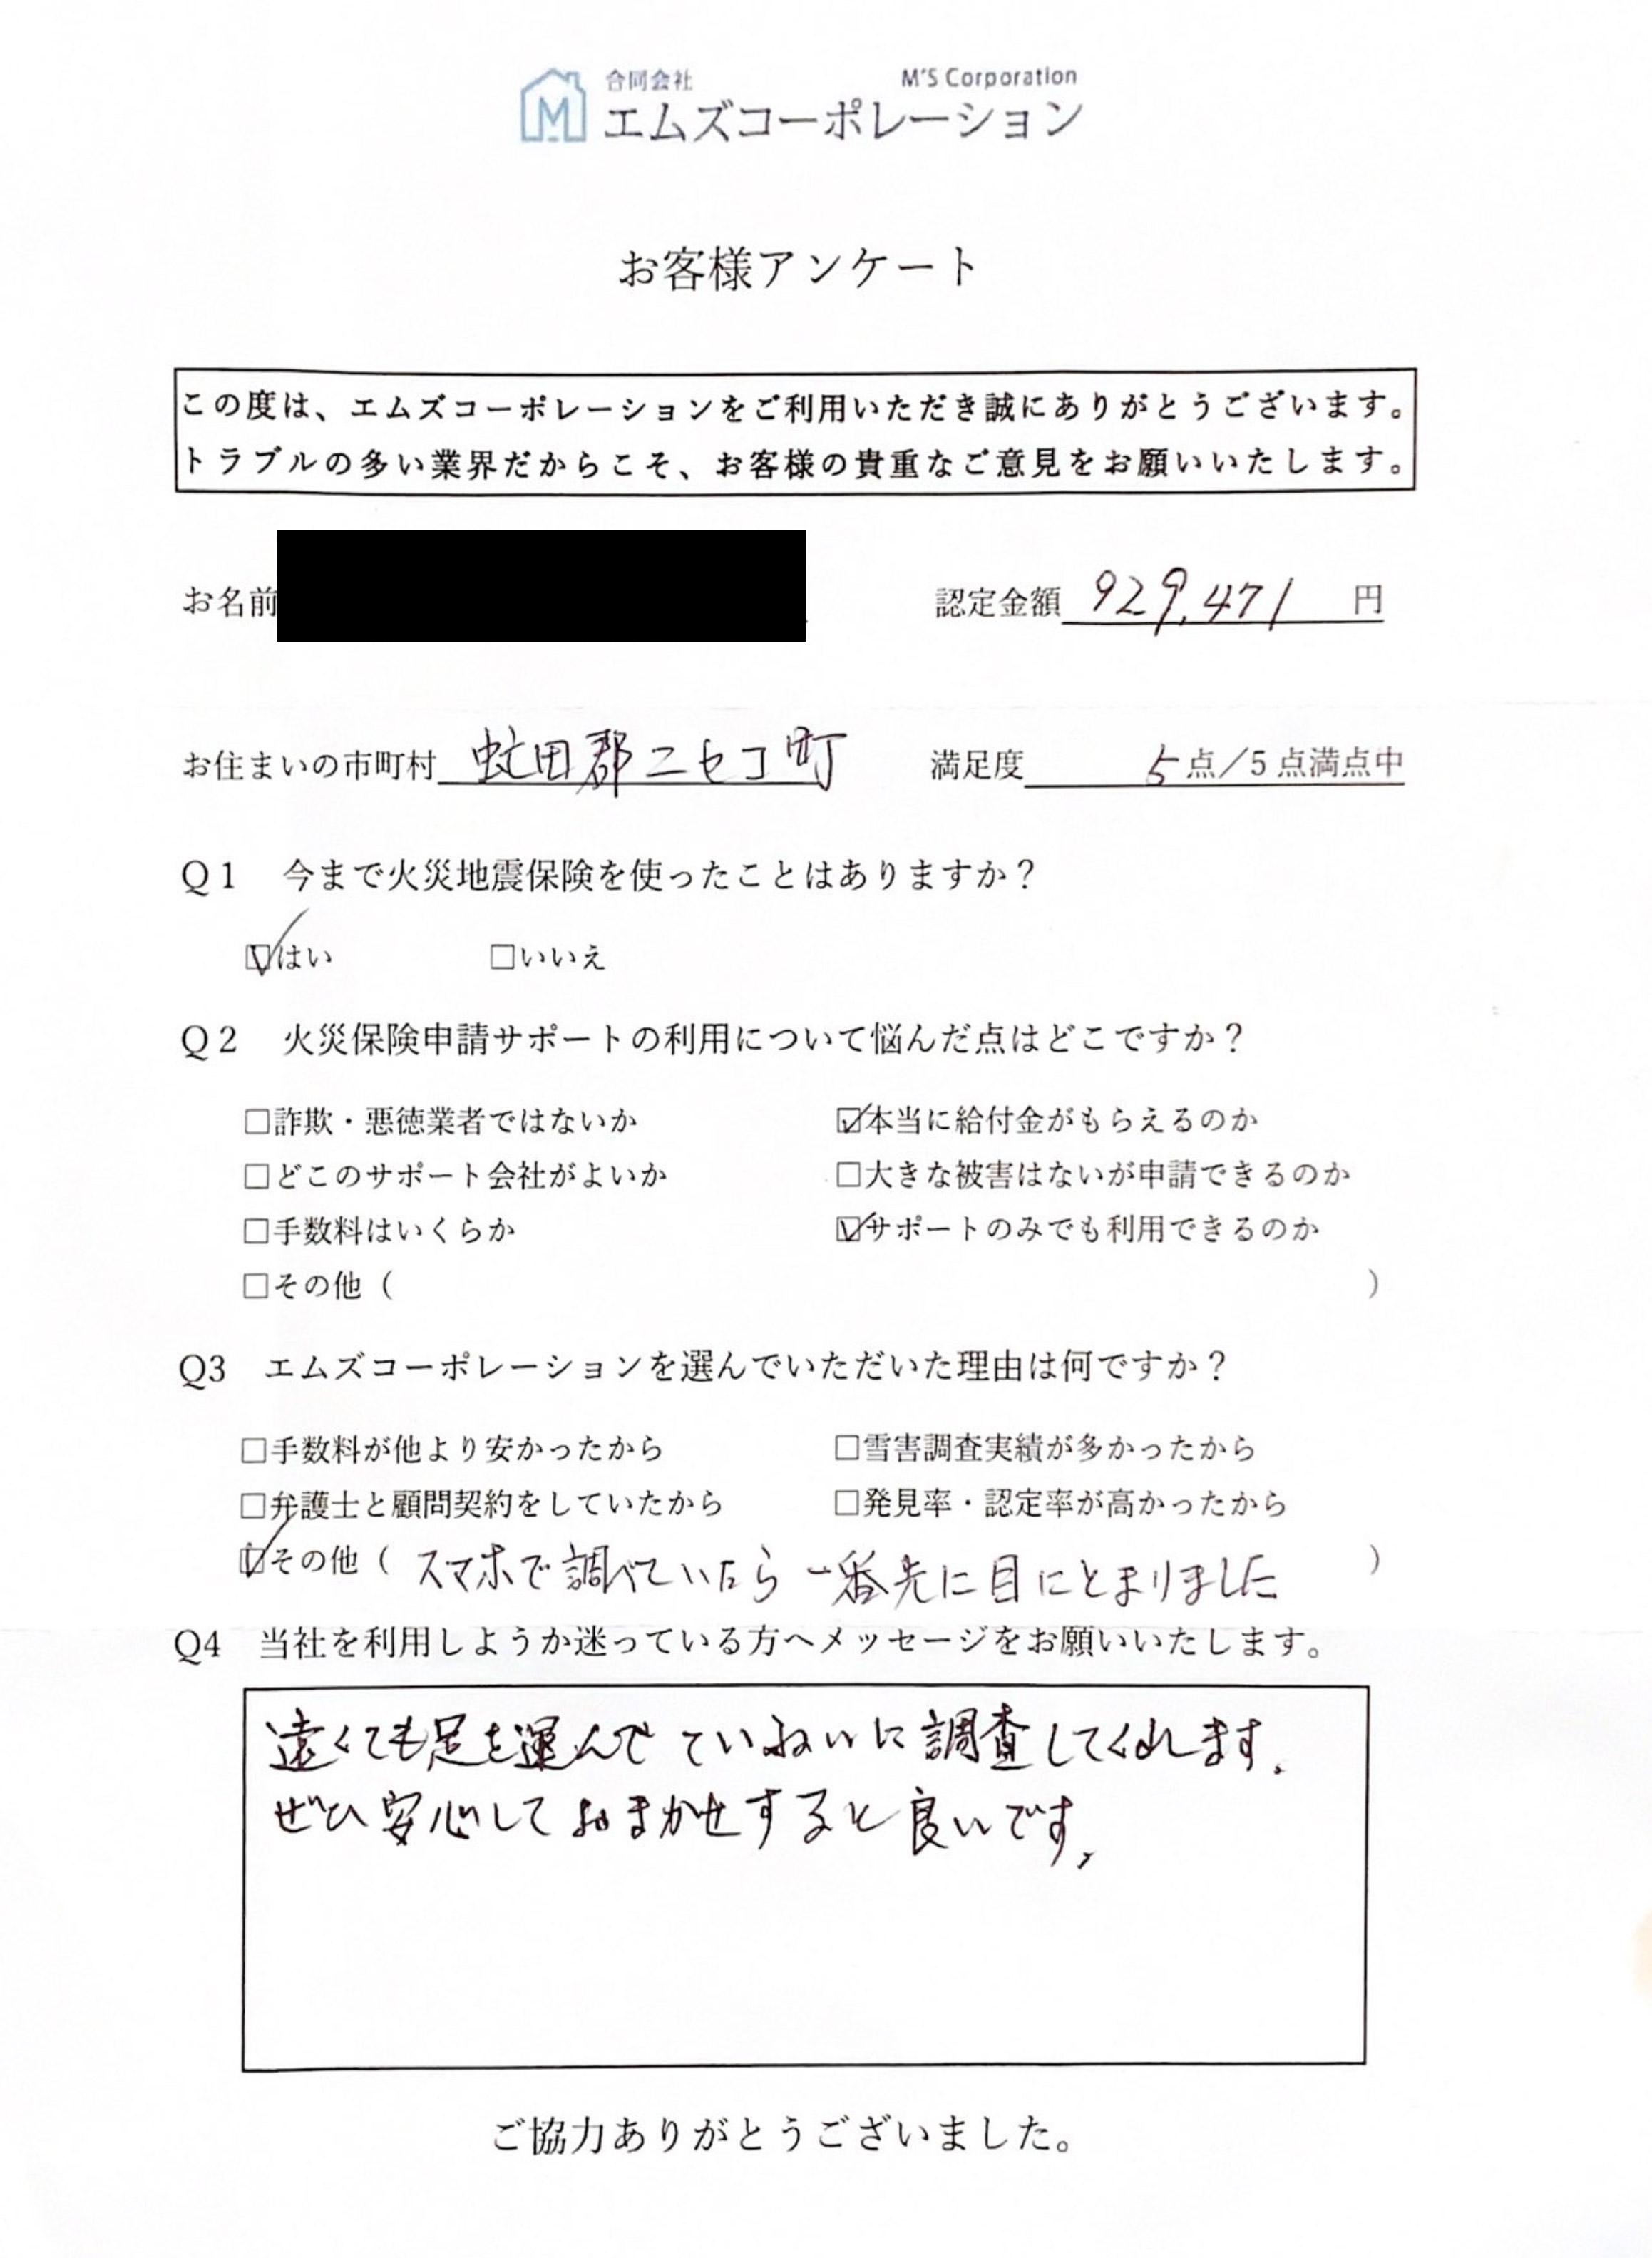 合同会社 M'S Corporation
M エムズコーポレーション
お客様アンケート
この度は、エムズコーポレーションをご利用いただき誠にありがとうございます。
トラブルの多い業界だからこそ、お客様の貴重なご意見をお願いいたします。
お名前 認定金額 929,471 円
お住まいの市町村 虻田郡ニセコ町 満足度 5 点／5 点満点中
Q１ 今まで火災地震保険を使ったことはありますか？
☑はい □いいえ
Q２ 火災保険申請サポートの利用について悩んだ点はどこですか？
□詐欺・悪徳業者ではないか ☑本当に給付金がもらえるのか
□どこのサポート会社がよいか □大きな被害はないが申請できるのか
□手数料はいくらか ☑サポートのみでも利用できるのか
□その他（ ）
Q3 エムズコーポレーションを選んでいただいた理由は何ですか？
□手数料が他より安かったから □雪害調査実績が多かったから
□弁護士と顧問契約をしていたから □発見率・認定率が高かったから
☑その他（ スマホで調べていたら一番先に目にとまりました ）
Q4 当社を利用しようか迷っている方へメッセージをお願いいたします。
遠くても足を運んでていねいに調査してくれます。
ぜひ安心しておまかせすると良いです。
ご協力ありがとうございました。